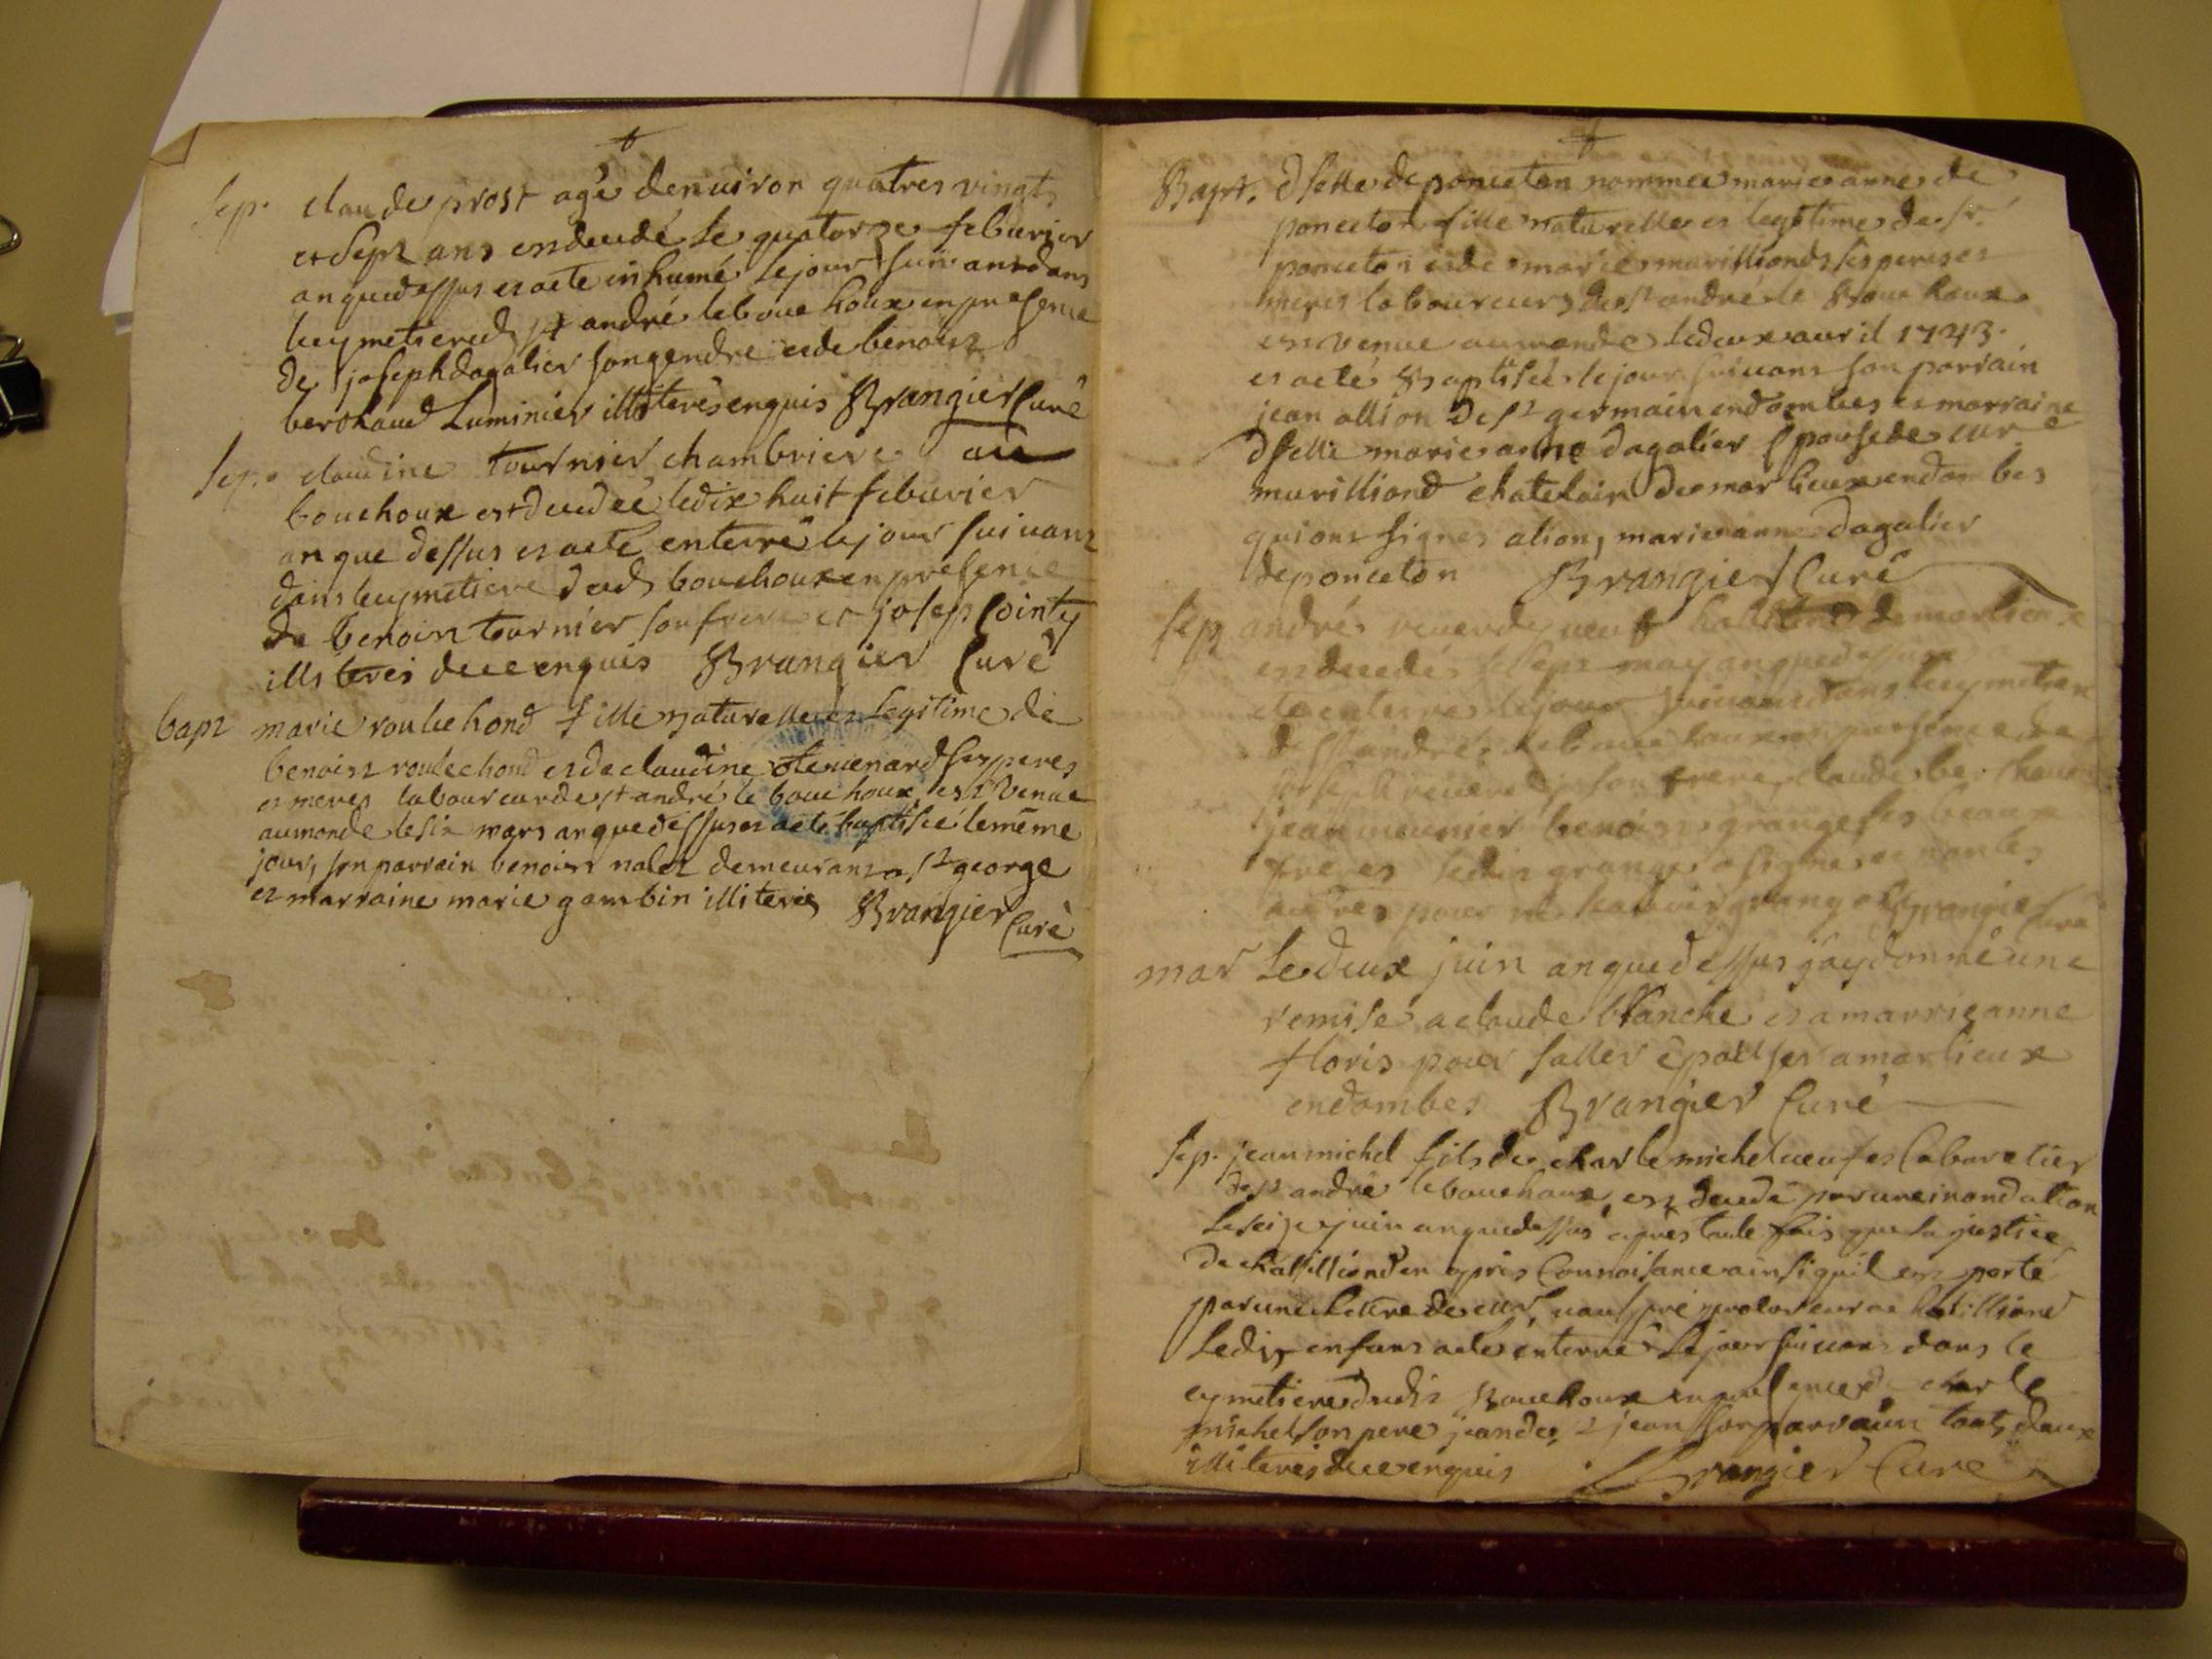 sep. claude prost agé denuiron quatres vingts
et sept ans est decedé le quatorze feburier
an que dessus et acté inhumé le jour suivant dans
le cymetiere dud st andré le bouchoux en presence
de joseph dagalier son gendre et de benoist
berthaud Luminier illiterés enquis Brangier Curé
sep. claudine tournier chambriere au
bouchoux est decedeé le dix huit feburier
an que dessus et acté enterré le jour suivant
dans le cymetiere dud bouchoux en présence
de benoist tournier son frere et joseph Cointy
illiterés de ce enquis Brangier Curé
bapt marie roulechond fille naturelle et Legitime de
benoist roulechond et de claudine ses peres
et meres laboureur de st andré le bouchoux est venue
au monde le six mars an que dessus et acté baptisée le même
jour, son parrain benoist nalet demeurant a st george
et marraine marie gambin illiterés Brangier
Curé
Bapt. dselle de ponceton nommeé marie anne de
ponceton fille naturelle et legitime de sr.
ponceton et de marie marilliond ses peres et
meres laboureurs de st andré le Bouchoux
est venue au monde le deux auril 1743.
et acté Baptiseé le jour suiuant son parrain
jean allion de st germain en dombes et marraine
dselle marie anne dagalier Epouse de
murilliond chatelain de marlieux en dombes
qui ont signes alion, marie anne dagalier
de ponceton Brangier Curé
sep andré reuerdy ueuf de marlieux
est decedé le sept may an que dessus
et enterré le jour suiuant dans le cymetiere
de st andré le bouchoux en presence de
joseph reuerdy son frere, claude
jean meunier benoist grange ses beaux
freres ledit grange a signé et non les
autres pour ne scauoir grange Brangier Curé
mar Le deux juin an que dessus jay donné une
remise a claude blanche et a marrie anne
floris pour saller épouser a marlieux
en dombes Brangier Curé
sep. jean michel fils de charle michel ueuf et Cabaretier
de st andré le bouchoux, est decedé par une inondation
le seize juin an que dessus après toute fois que la justice
de chatilliond en a pris Connoisance ainsi quil est porté
par une Lettre de
Ledit enfant acté enterré le jour suiuant dans le
cymetiere dudit Bouchoux en presence de charle
michel son pere jean son parrain touts deux
illiterés de ce enquis Brangier Curé